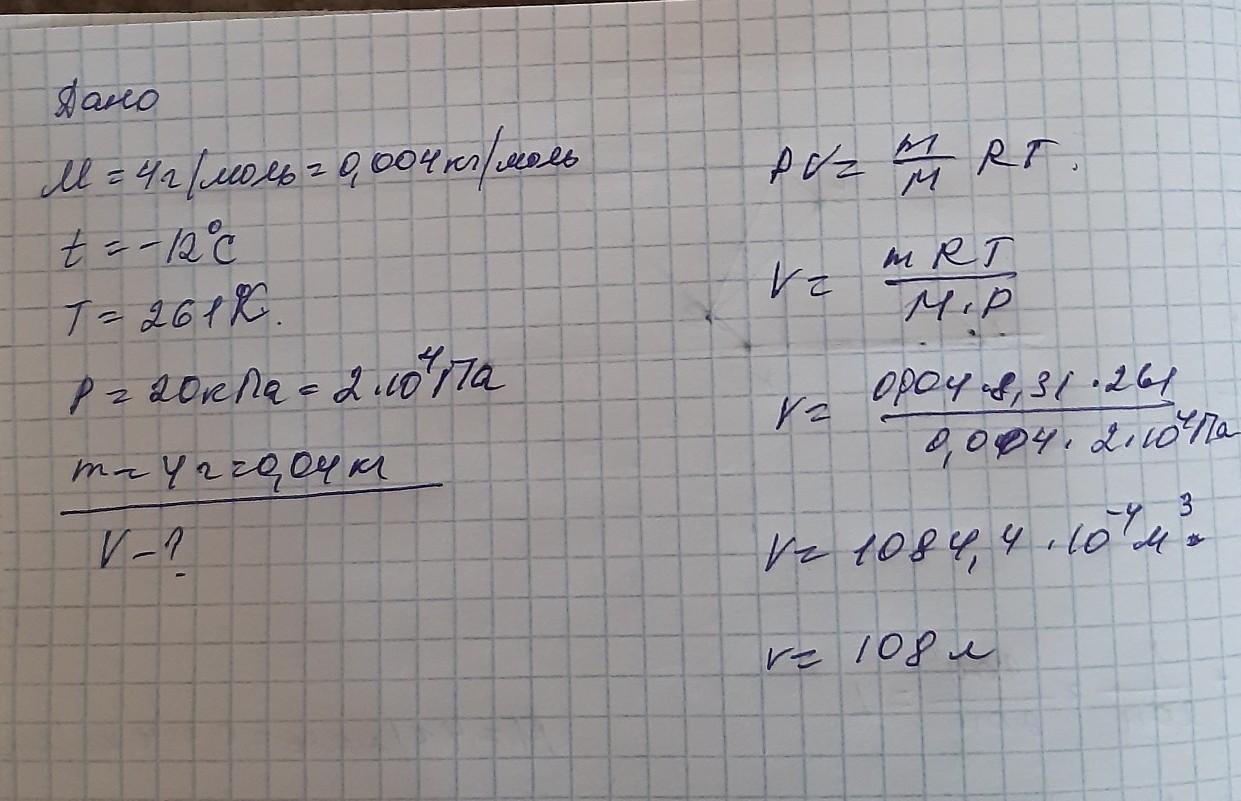 Дано
M = 4г/моль = 0,004кг/моль
t = -12°C
T = 261K.
P = 20кПа = 2·10⁴Па
m = 4г = 0,04кг
V - ?
PV = m/M RT.
V = mRT/M·P
V = 0,004·8,31·261/0,004·2·10⁴Па
V = 1084,4·10⁻⁴м³
V = 108л